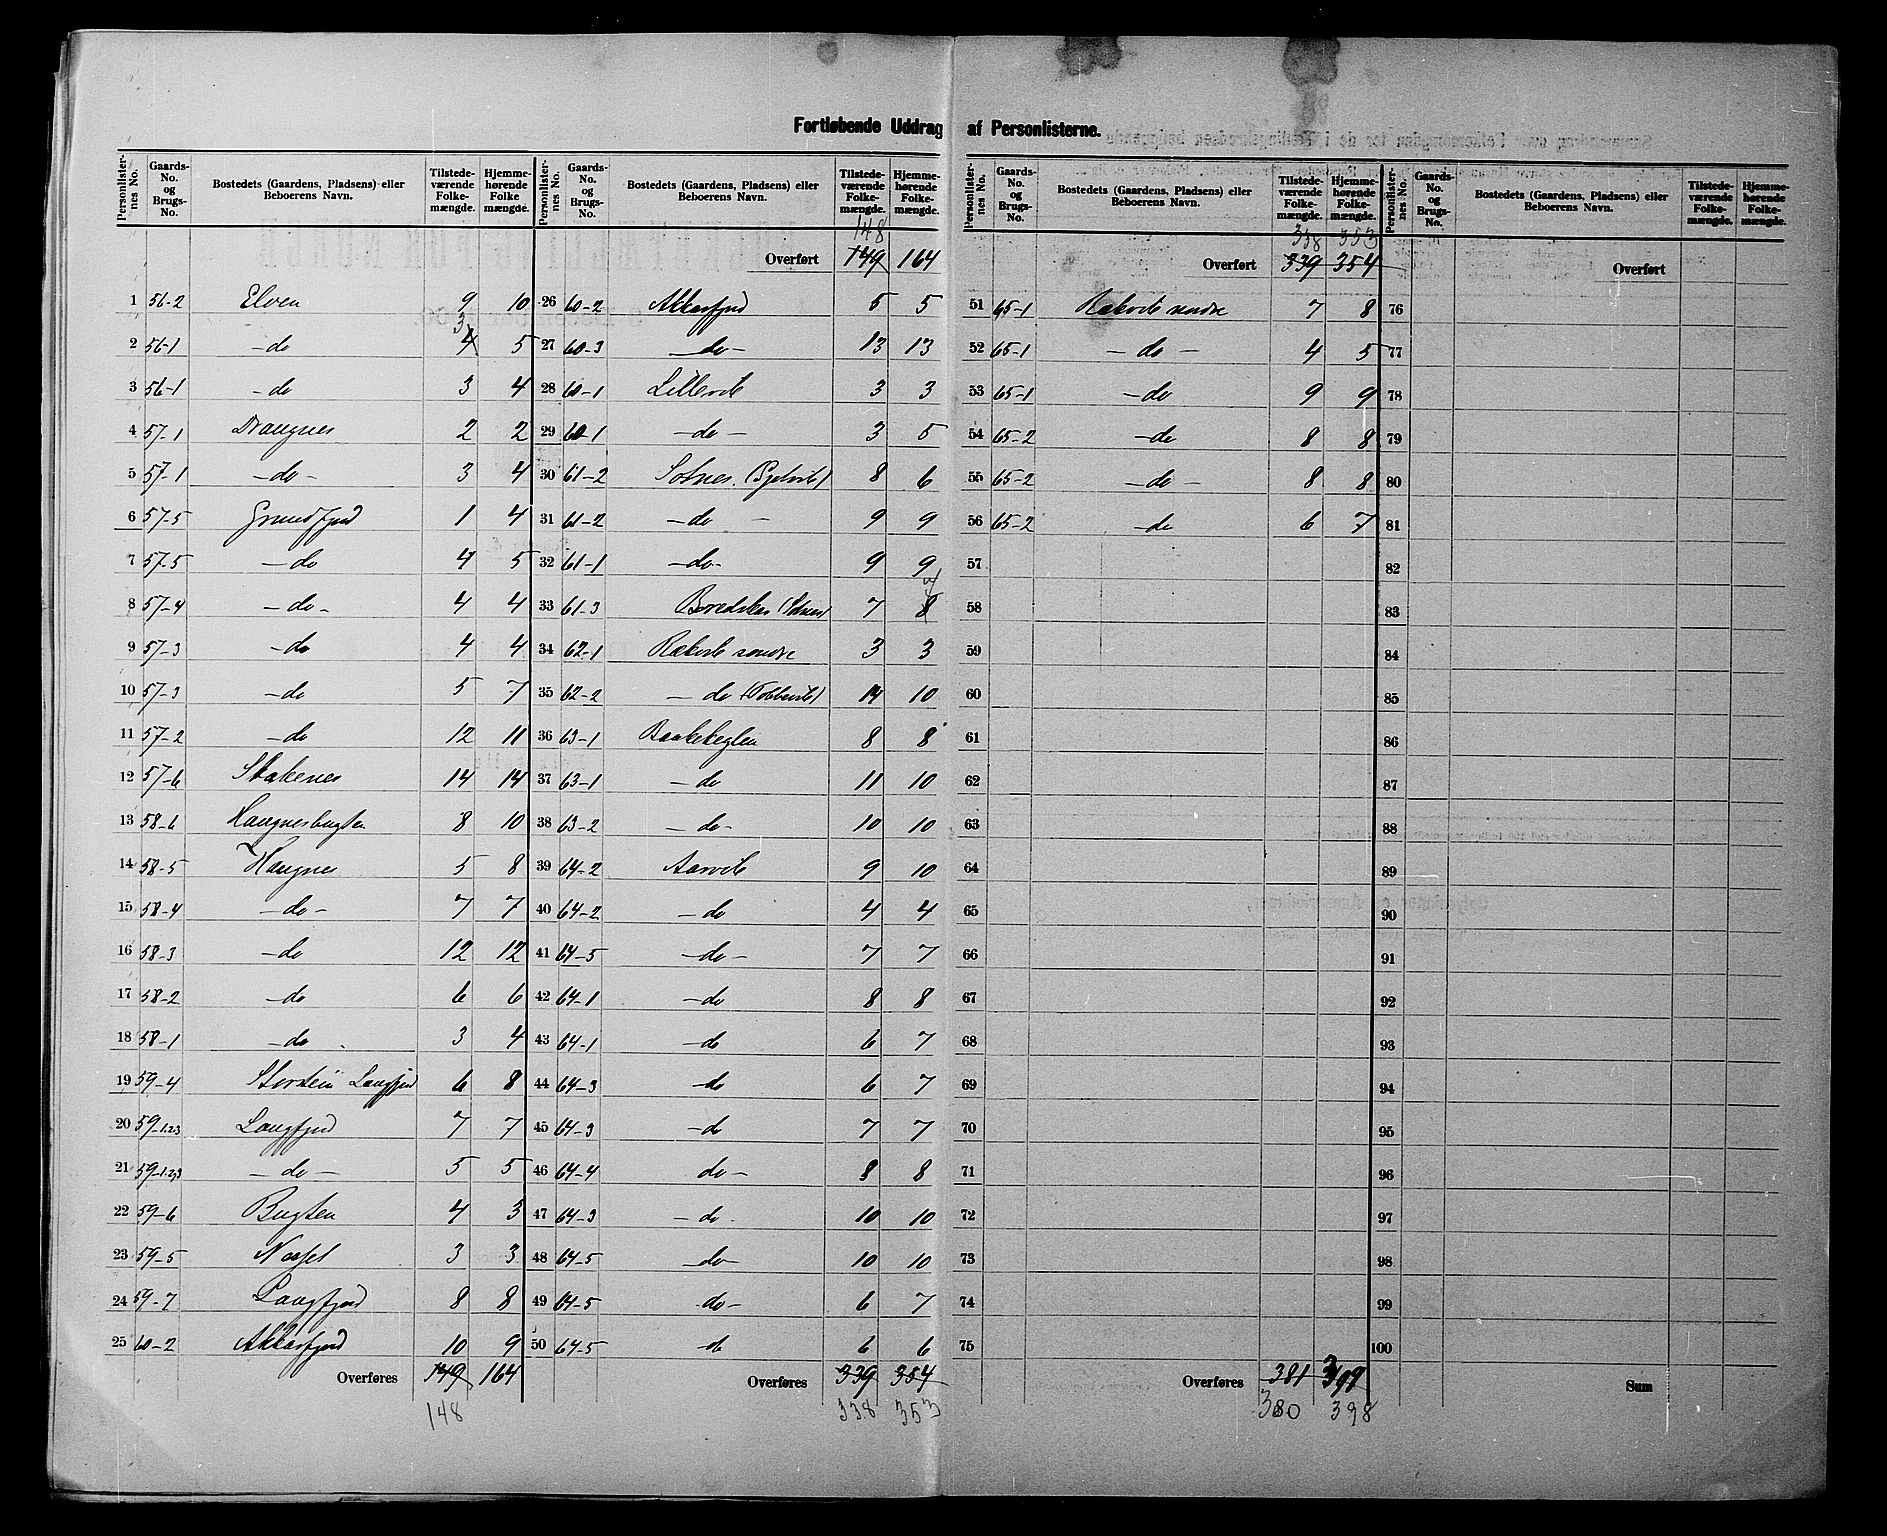 Fortløbende Uddrag af Personlisterne.
Personlisternes No. Gaards-No. og Brugs-No. Bostedets (Gaardens, Pladsens) eller Beboerens Navn. Tilstedeværende Folkemængde. Hjemmehørende Folkemængde.
1 56-2 Elven 9 10
2 56-1 -do 4 3 5
3 56-1 -do 3 4
4 57-1 Draugnes 2 2
5 57-1 -do- 3 4
6 57-5 Grundfjord 1 4
7 57-5 -do 4 5
8 57-4 -do- 4 4
9 57-3 -do 4 4
10 57-3 -do 5 7
11 57-2 -do 12 11
12 57-6 Stakenes 14 14
13 58-6 Haugnesbugten 8 10
14 58-5 Haugnes 5 8
15 58-4 -do- 7 7
16 58-3 -do 12 12
17 58-2 -do 6 6
18 58-1 -do 3 4
19 59-4 Storstein Langfjord 6 8
20 59-1.2.3 Langfjord 7 7
21 59-1.2.3 -do- 5 5
22 59-6 Bugten 4 3
23 59-5 3 3
24 59-7 Langfjord 8 8
25 60-2 Akkarfjord 10 9
Overføres 149 164
148
Personlisternes No. Gaards-No. og Brugs-No. Bostedets (Gaardens, Pladsens) eller Beboerens Navn. Tilstedeværende Folkemængde. Hjemmehørende Folkemængde.
148
Overført 149 164
26 60-2 Akkarfjord 5 5
27 60-3 -do- 13 13
28 60-1 Lillevik 3 3
29 60-1 -do- 3 5
30 61-2 8 6
31 61-2 -do- 9 9
32 61-1 -do- 9 9
33 61-3 7 8 7
34 62-1 Rækvik søndre 3 3
35 62-2 -do 14 10
36 63-1 Baakekeglen 8 8
37 63-1 -do 11 10
38 63-2 -do- 10 10
39 64-2 Aarvik 9 10
40 64-2 -do 4 4
41 64-5 -do- 7 7
42 64-1 -do 8 8
43 64-1 -do 6 7
44 64-3 -do 6 7
45 64-3 -do 7 7
46 64-4 do- 8 8
47 64-3 -do 10 10
48 64-5 do- 10 10
49 64-5 -do- 6 7
50 64-5 do 6 6
Overføres 339 354
338 353
Personlisternes No. Gaards-No. og Brugs-No. Bostedets (Gaardens, Pladsens) eller Beboerens Navn. Tilstedeværende Folkemængde. Hjemmehørende Folkemængde.
338 353
Overført 339 354
51 65-1 Rækvik nordre 7 8
52 65-1 -do- 4 5
53 65-1 -do 9 9
54 65-2 -do 8 8
55 65-2 -do- 8 8
56 65-2 -do 6 7
57
58
59
60
61
62
63
64
65
66
67
68
69
70
71
72
73
74
75
Overføres 381 399
380 398
Personlisternes No. Gaards-No. og Brugs-No. Bostedets (Gaardens, Pladsens) eller Beboerens Navn. Tilstedeværende Folkemængde. Hjemmehørende Folkemængde.
Overført
76
77
78
79
80
81
82
83
84
85
86
87
88
89
90
91
92
93
94
95
96
97
98
99
100
Sum